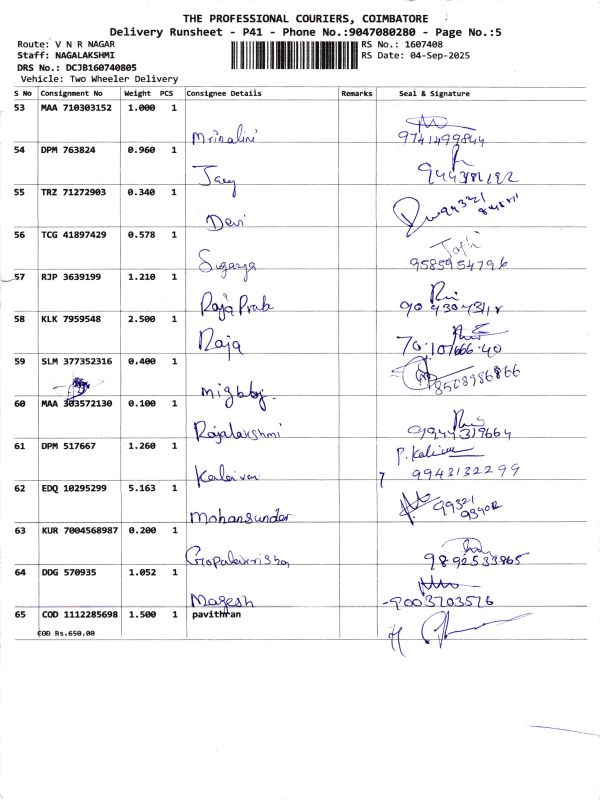 THE PROFESSIONAL COURIERS, COIMBATORE
Delivery Runsheet - P41 - Phone No.:9047080280 - Page No.:5
Route: V N R NAGAR RS No.: 1607408
Staff: NAGALAKSHMI RS Date: 04-Sep-2025
DRS No.: DCJB160740805
Vehicle: Two Wheeler Delivery
S No Consignment No Weight PCS Consignee Details Remarks Seal & Signature
53 MAA 710303152 1.000 1
Mrinalini 9741499844
54 DPM 763824 0.960 1
Jaey
55 TRZ 71272903 0.340 1
Devi
56 TCG 41897429 0.578 1
9585954796
57 RJP 3639199 1.210 1
Raja Prab
58 KLK 7959548 2.500 1
Raja 70.107666.40
59 SLM 377352316 0.400 1
8508986866
60 MAA 303572130 0.100 1
Rajalakshmi 9194431 9664
61 DPM 517667 1.260 1 P. Kalivan
Kalaivani 9943132299
62 EDQ 10295299 5.163 1
Mohansunder 99321
63 KUR 7004568987 0.200 1
Gopalakrishn 9892533865
64 DDG 570935 1.052 1
Magesh 9003703576
65 COD 1112285698 1.500 1 pavithran
COD Rs.650.00